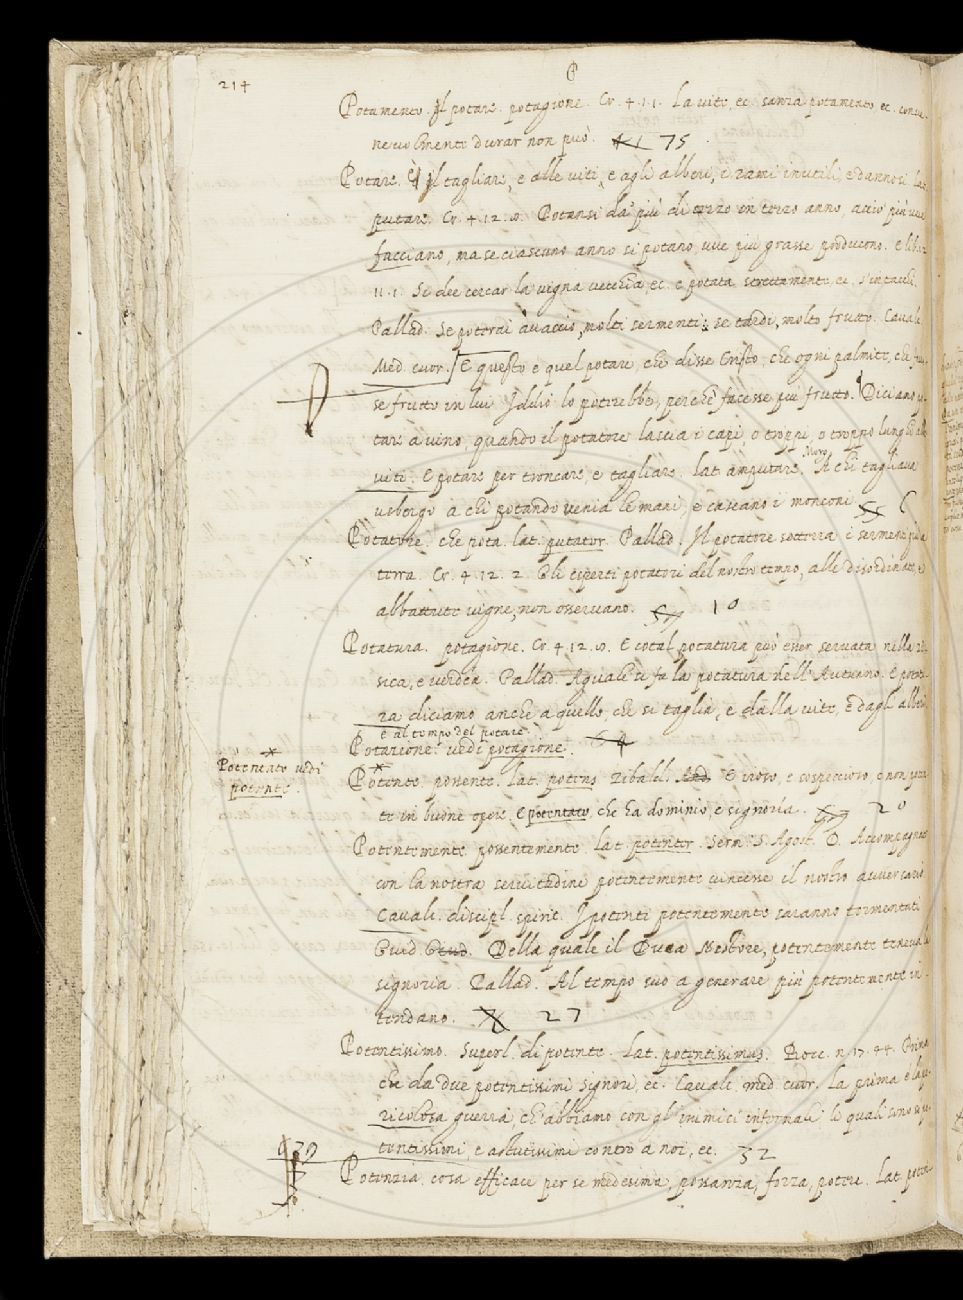 214
P
Potamento. Il potare. potagione. Cr. 4. 1. 1. La vite, ec. sanza potamento ec. conve-
nevolmente durar non può. 75
Potare. è il tagliare, e alle viti, e agli alberi, i rami inutili, e dannosi. lat.
putare. Cr. 4. 12. Potansi da' più di terzo in terzo anno, acciò più uve
facciano, ma se ciascuno anno si potano, uve più grasse producono. e lib.
11. 1. Si dee cercar la vigna vecchia, ec. e potata strettamente ec. s'intacchi.
Pallad. Se poterai avaccio, molti sermenti: se tardi, molto frutto. Cavalc.
Med. cuor. E questo è quel potare, che disse Cristo, che ogni palmite, che
se frutto in lui Iddio lo potrebbe, perchè facesse più frutto. Diciano po-
tare a vino, quando il potatore lascia i capi, o troppi, o troppo lunghi alle
viti. E potare per troncare, e tagliare. lat. amputare. Morg. A chi tagliava
usbergo a chi potando venia le mani, e cascano i monconi
Potatore. che pota. lat. putator. Pallad. Il potatore sotterra i sermenti
terra. Cr. 4. 12. 2. Gli esperti potatori del nostro tempo, alle disordinate, e
abbattute vigne, non osservano. 10
Potatura. potagione. Cr. 4. 12. E cotal potatura può esser servata nella
sica, e verdea. Pallad. Aguale si fa la potatura dell'Autunno. E potatu-
ra diciamo anche a quello, che si taglia, e dalla vite, e dagli alberi
e al tempo del potare.
Potazione. vedi potagione.
Potentato vedi
potente.
Potente. possente. lat. potens. Ribald. E iroso, e sospeccioso, e non
te in buone opere. E potentato, che ha dominio, e signoria. 20
Potentemente. possentemente. lat. potenter. Serm. S. Agost. D. Accompagnate
con la nostra servitudine potentemente vincesse il nostro avversario
Cavalc. discipl. spirit. I potenti potentemente saranno tormentati
Guid. Giud. Della quale il Duca Nestore, potentemente teneva la
signoria. Pallad. Al tempo suo a generare più potentemente in-
tendano. 27
Potentissimo. Superl. di potente. Lat. potentissimus. Petr. n. 17. 44. Prima
che da due potentissimi signori, ec. Cavalc. med. cuor. La prima è la pe-
ricolosa guerra, ch'abbiamo con gl'inimici infernali le quali sono sì po-
tentissimi, e astutissimi contro a noi, ec. 32
Potenzia. cosa efficace per se medesima, possanza, forza, potere. Lat.